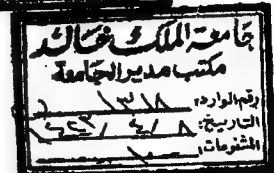 جامعة الملك خالد
مكتب مدير الجامعة
رقم الوارد: ١٣١٨
التاريخ: ٨ / ٤ / ١٤٢٣
المشفوعات: